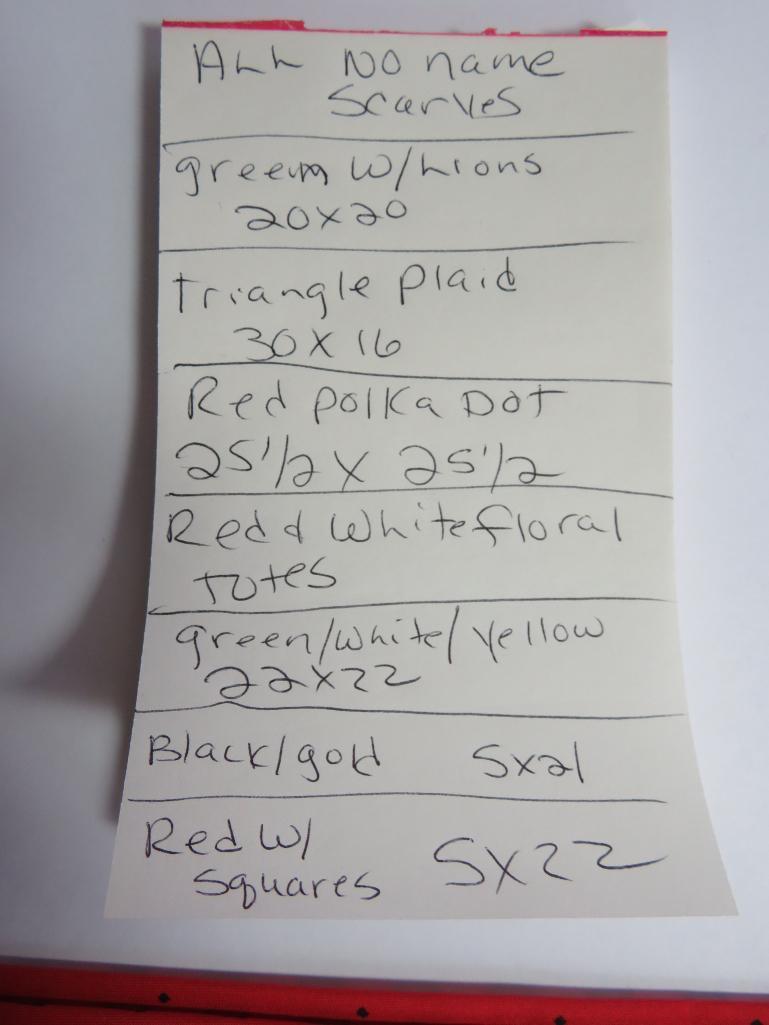 All No name
scarves
green w/Lions
20x20
triangle plaid
30 x 16
Red polka Dot
25 1/2 x 25 1/2
Red & white floral
totes
green/white/yellow
22x22
Black/gold 5x21
Red w/
squares 5x22